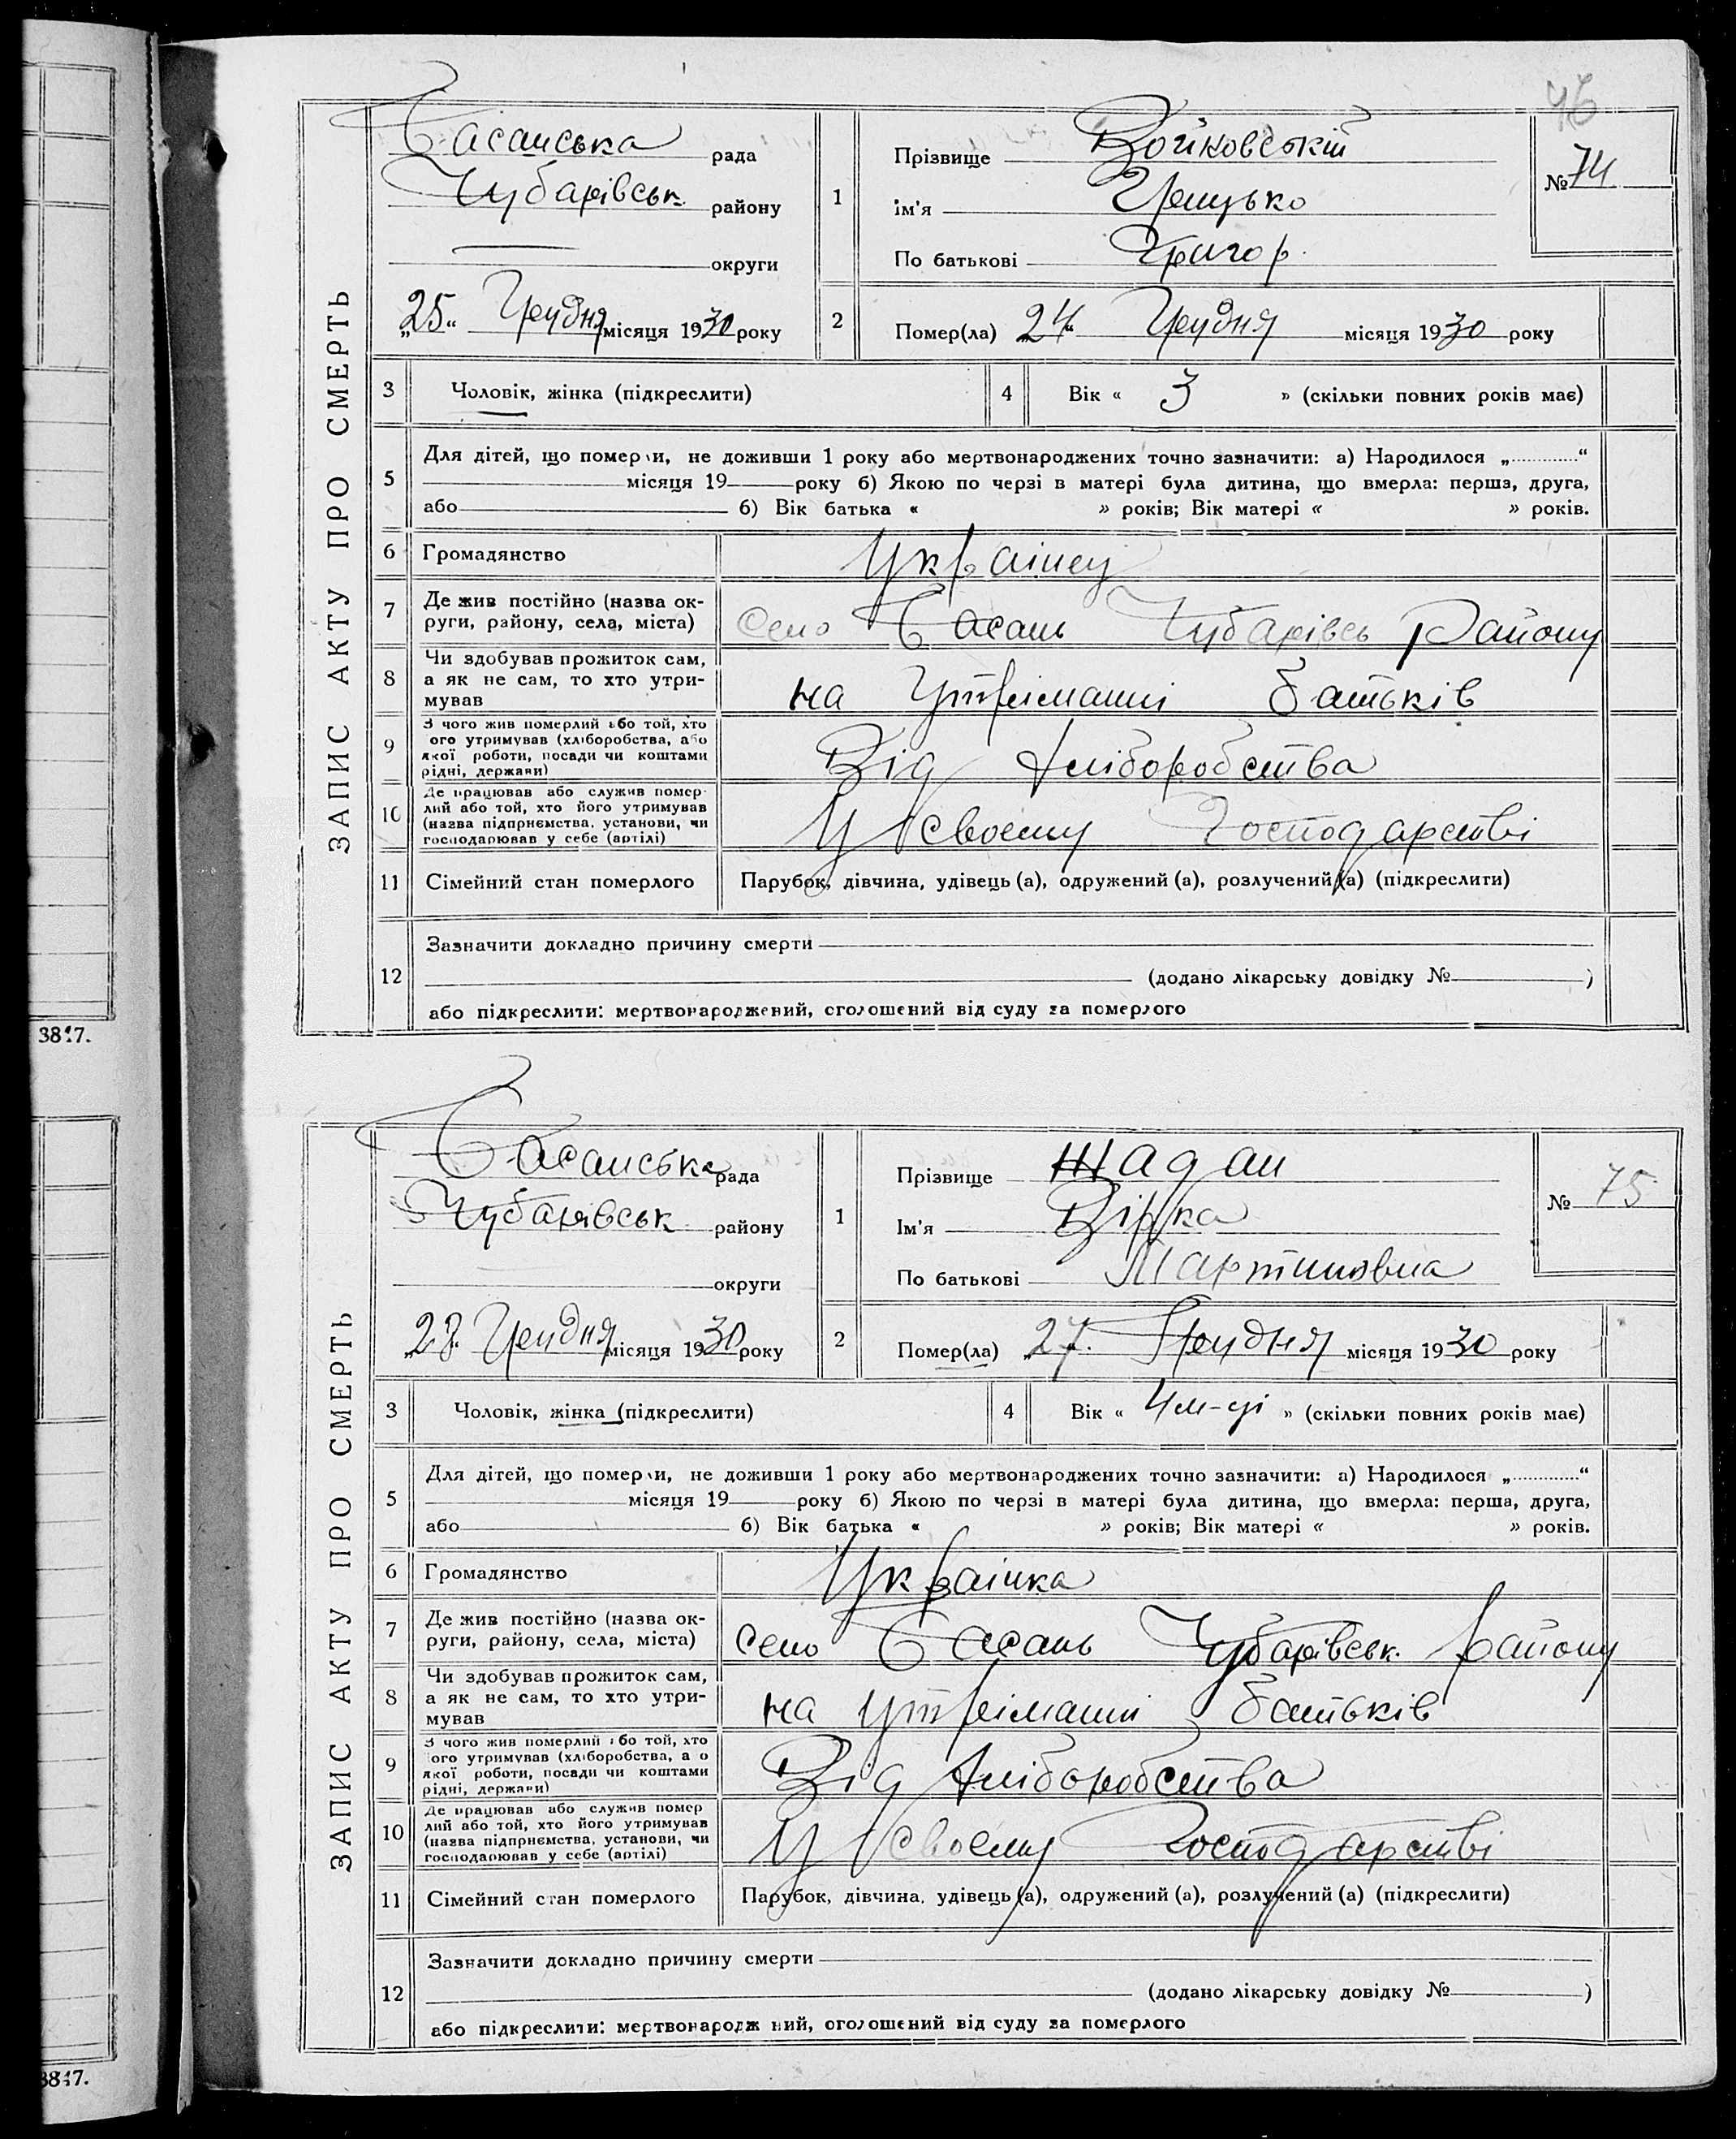 46
ЗАПИС АКТУ ПРО СМЕРТЬ
Басанська рада
Чубарівськ. району
округи
„25“ Грудня місяця 1930 року
1
Прізвище Войковський
Ім'я Грицько
По батькові Григор.
№ 74
2
Помер(ла) 24 Грудня місяця 1930 року
3 Чоловік, жінка (підкреслити)
4 Вік « 3 » (скільки повних років має)
5
Для дітей, що померли, не доживши 1 року або мертвонароджених точно зазначити: а) Народилося „............“
місяця 19 року б) Якою по черзі в матері була дитина, що вмерла: перша, друга,
або б) Вік батька « » років; Вік матері « » років.
6 Громадянство Українец
7 Де жив постійно (назва ок-
руги, району, села, міста) Село Басань Чубарівсь Району
8 Чи здобував прожиток сам,
а як не сам, то хто утри-
мував на Утріманні батьків
9 З чого жив померлий або той, хто
ого утримував (хліборобства, або
якої роботи, посади чи коштами
рідні, держави) Від Хліборобства
10 Де працював або служив помер-
лий або той, хто його утримував
(назва підприємства, установи, чи
господарював у себе (артілі) У своему Господарстві
11 Сімейний стан померлого Парубок, дівчина, удівець (а), одружений (а), розлучений (а) (підкреслити)
12
Зазначити докладно причину смерти
(додано лікарську довідку № )
або підкреслити: мертвонароджений, оголошений від суду за померлого
3847.
ЗАПИС АКТУ ПРО СМЕРТЬ
Басанська рада
Чубарівськ району
округи
„28. Грудня місяця 1930 року
1
Прізвище Жадан
Ім'я Вірка
По батькові Мартиновна
№ 75
2
Помер(ла) „27. Грудня місяця 1930 року
3 Чоловік, жінка (підкреслити)
4 Вік « 4 м-ці » (скільки повних років має)
5
Для дітей, що померли, не доживши 1 року або мертвонароджених точно зазначити: а) Народилося „............“
місяця 19 року б) Якою по черзі в матері була дитина, що вмерла: перша, друга,
або б) Вік батька « » років; Вік матері « » років.
6 Громадянство Українка
7 Де жив постійно (назва ок-
руги, району, села, міста) Село Басань Чубарівськ. району
8 Чи здобував прожиток сам,
а як не сам, то хто утри-
мував на утріманні батьків
9 З чого жив померлий або той, хто
ого утримував (хліборобства, а о
якої роботи, посади чи коштами
рідні, держави) Від Хліборобства
10 Де працював або служив помер
лий або той, хто його утримував
(назва підприємства, установи, чи
господарював у себе (артілі) У своему Господарстві
11 Сімейний стан померлого Парубок, дівчина, удівець (а), одружений (а), розлучений (а) (підкреслити)
12
Зазначити докладно причину смерти
(додано лікарську довідку № )
або підкреслити: мертвонародж ний, оголошений від суду за померлого
3847.